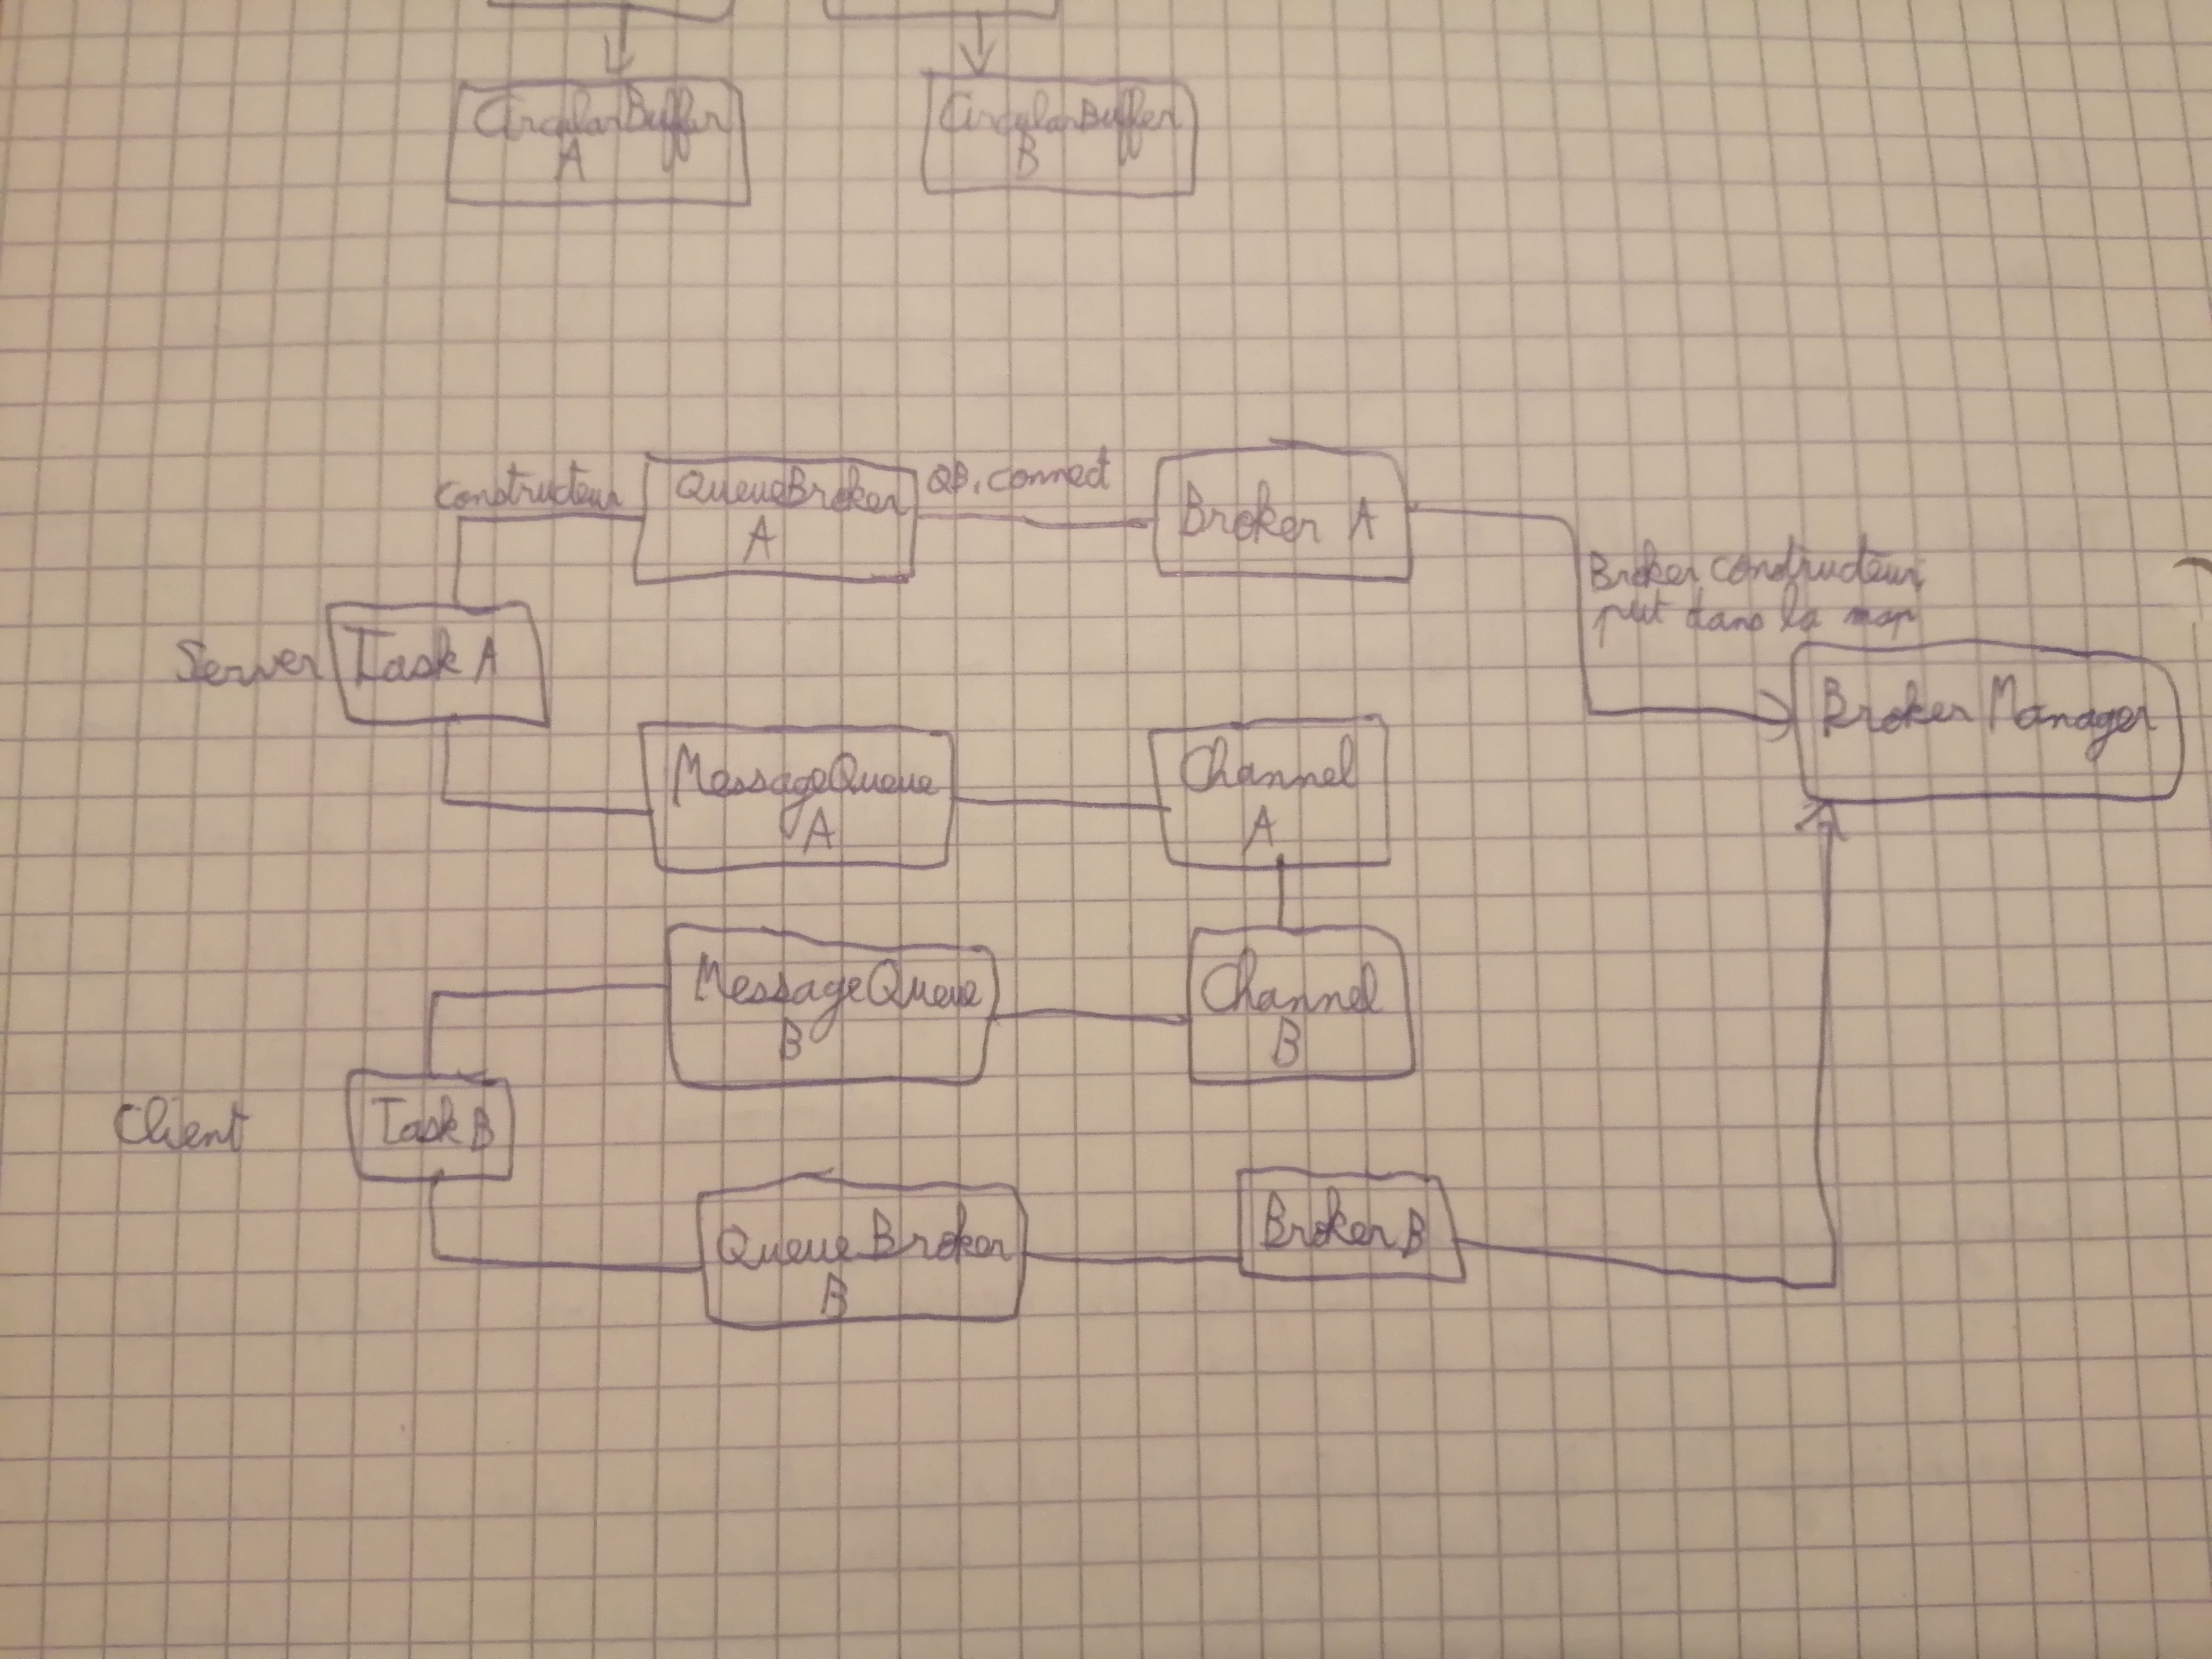 CircularBuffer
A
CircularBuffer
B
constructeur
QueueBroker
A
QB.connect
Broker A
Broker constructeur
put dans la map
Server
Task A
Broker Manager
MessageQueue
A
Channel
A
MessageQueue
B
Channel
B
Client
Task B
QueueBroker
B
Broker B